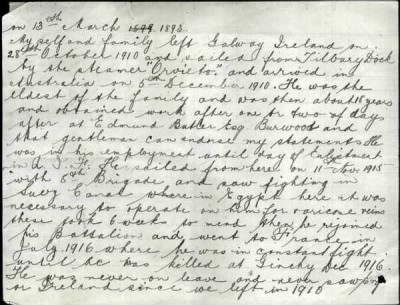 on 13th March 1894 1893
Myself and family left Galway Ireland on
28th October 1910 and sailed from Tilbury Dock
by the steamer "Orvieto" and arrived in
Australia on 5th December 1910. He was the
eldest of the family and was then about 18 years
and obtained work after one or two of days
after at Edmund Baker Esq Burwood and
that gentleman can endorse my statements He
was in his employment until day of Enlistment
in A.I.F. He sailed from here on 11 Nov. 1915
with 5th Brigade and saw fighting in
Suez Canal where in Egypt here it was
necessary to operate on him for varicose veins
these took 6 weeks to mend then he rejoined
his Battalion and went to France in
July 1916 where he was in constant fight
until he was killed at Ginchy Dec 1916.
He was never on leave and never saw
or Ireland since we left in 1910